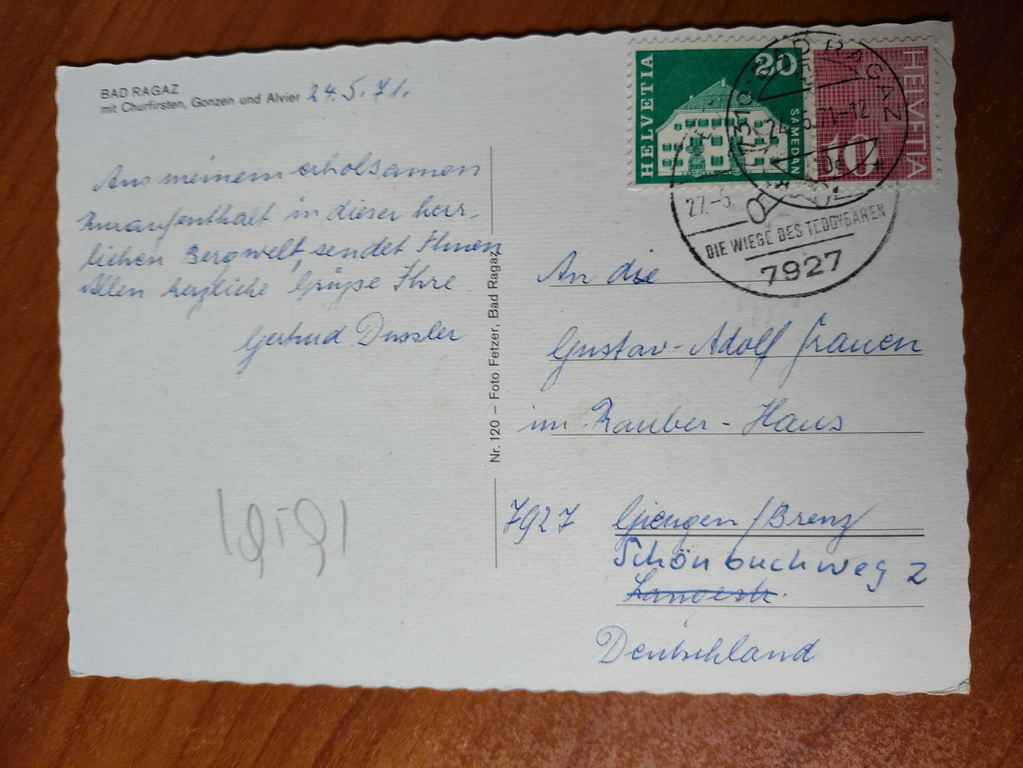 BAD RAGAZ
mit Churfirsten, Gonzen und Alvier 24.5.71.
Aus meinem erholsamen
Kuraufenthalt in dieser herr-
lichen Bergwelt sendet Ihnen
Allen herzliche Grüße Ihre
Gertrud Dussler
Nr. 120 – Foto Fetzer, Bad Ragaz
HELVETIA
20
SAMEDAN
HELVETIA
10
BAD RAGAZ
27.-5.
DIE WIEGE DES TEDDYBÄREN
7927
An die
Gustav-Adolf Frauen
im Zauber-Haus
7927 Giengen/Brenz
Schönbuchweg 2
Langestr.
Deutschland